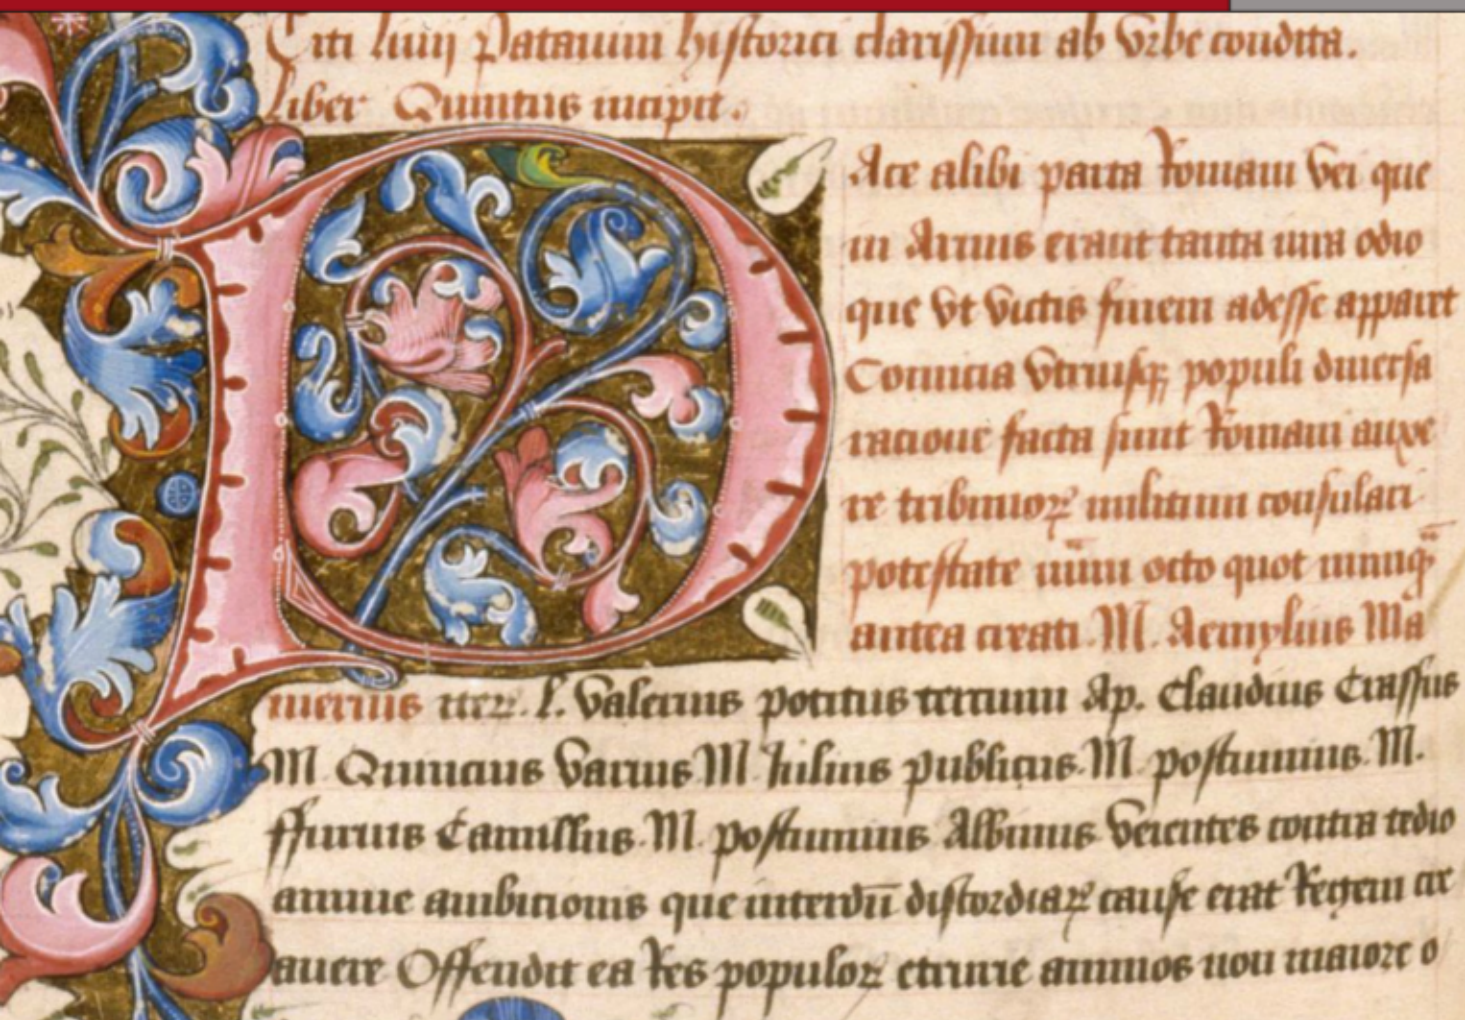 Titi liuij Patauini historici clarissimi ab Vrbe condita.
Liber Quintus incipit.
PAce alibi parta Romani Vei que
in Armis erant tanta ira odio
que vt victis finem adesse appareret
Comicia vtriusqꝫ populi diuersa
racione facta sunt Romani auxe
re tribunoꝝ militum consulari
potestate nūm octo quot nunqᷓ
antea creati M. Aemylius Ma
mercus iteꝝ. l. Valerius potitus tercium Ap. Claudius Crassus
M Quincius Varius M Iulius publicus. M. postumius. M.
ffurius Camillus. M. postumius Albinus Veientes contra tedio
annue ambicionis que interdū discordiaꝝ cause erat Regem cre
auere Offendit ea Res populoꝝ etrurie animos non maiore o